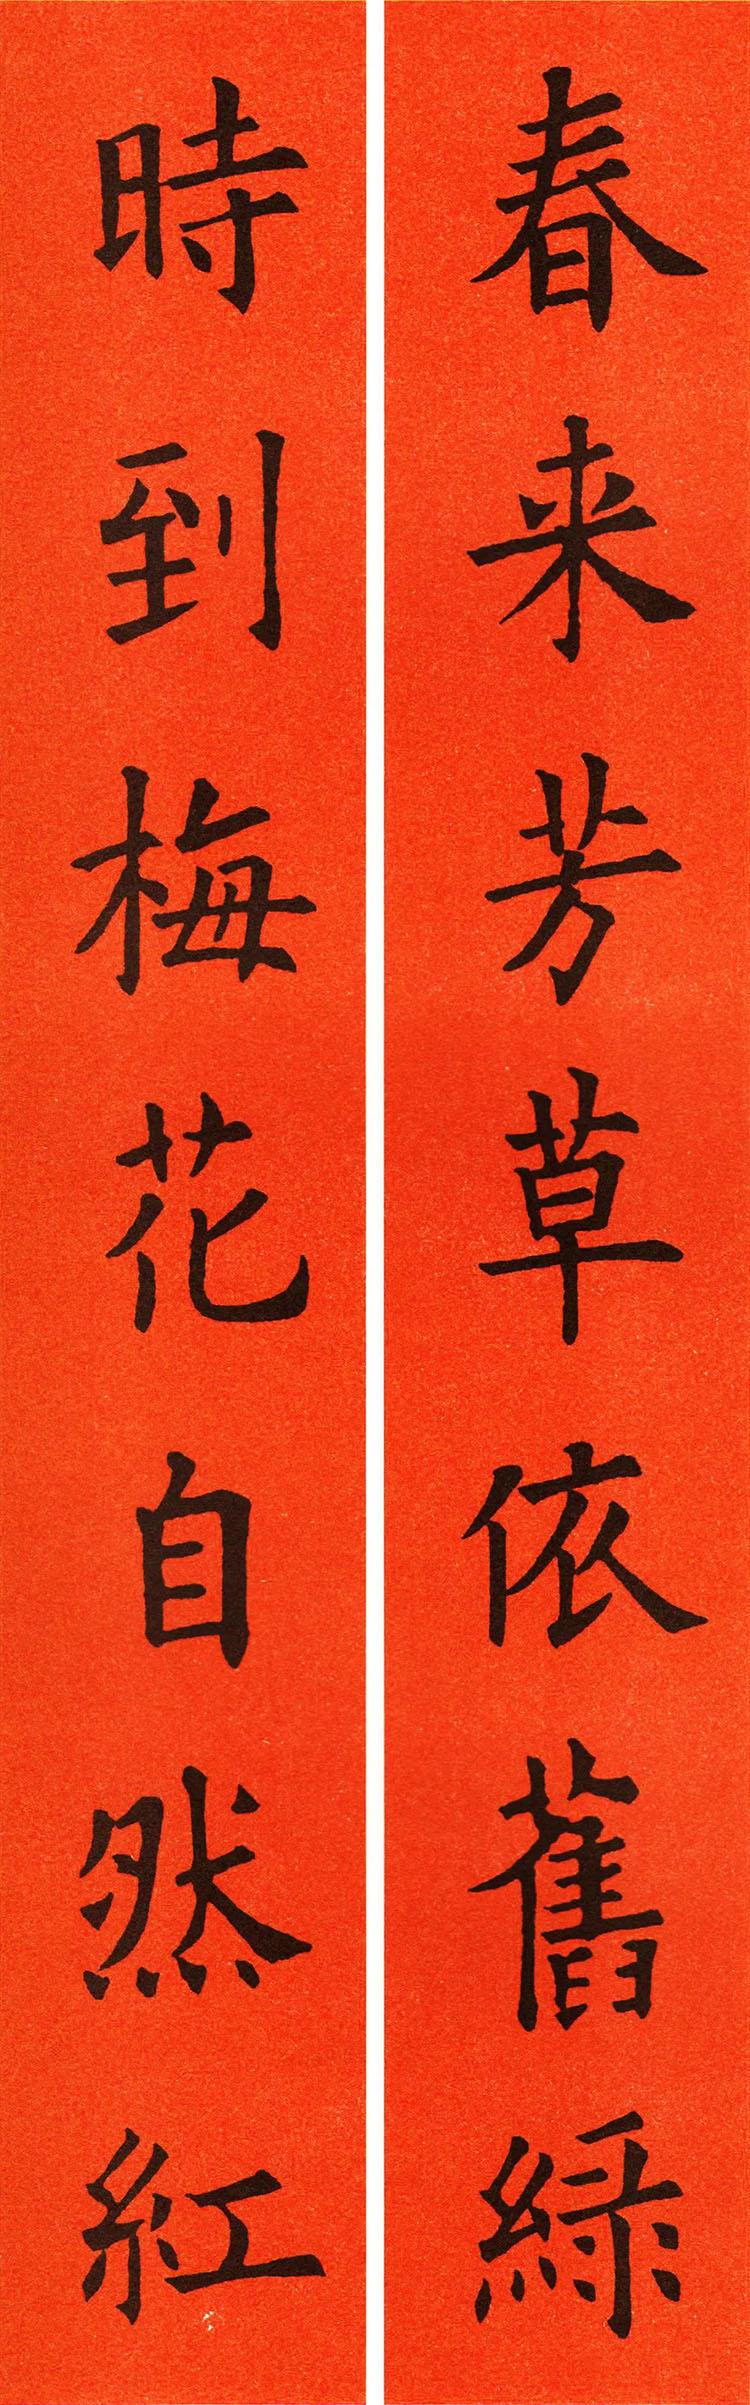 春来芳草依舊緑
時到梅花自然紅